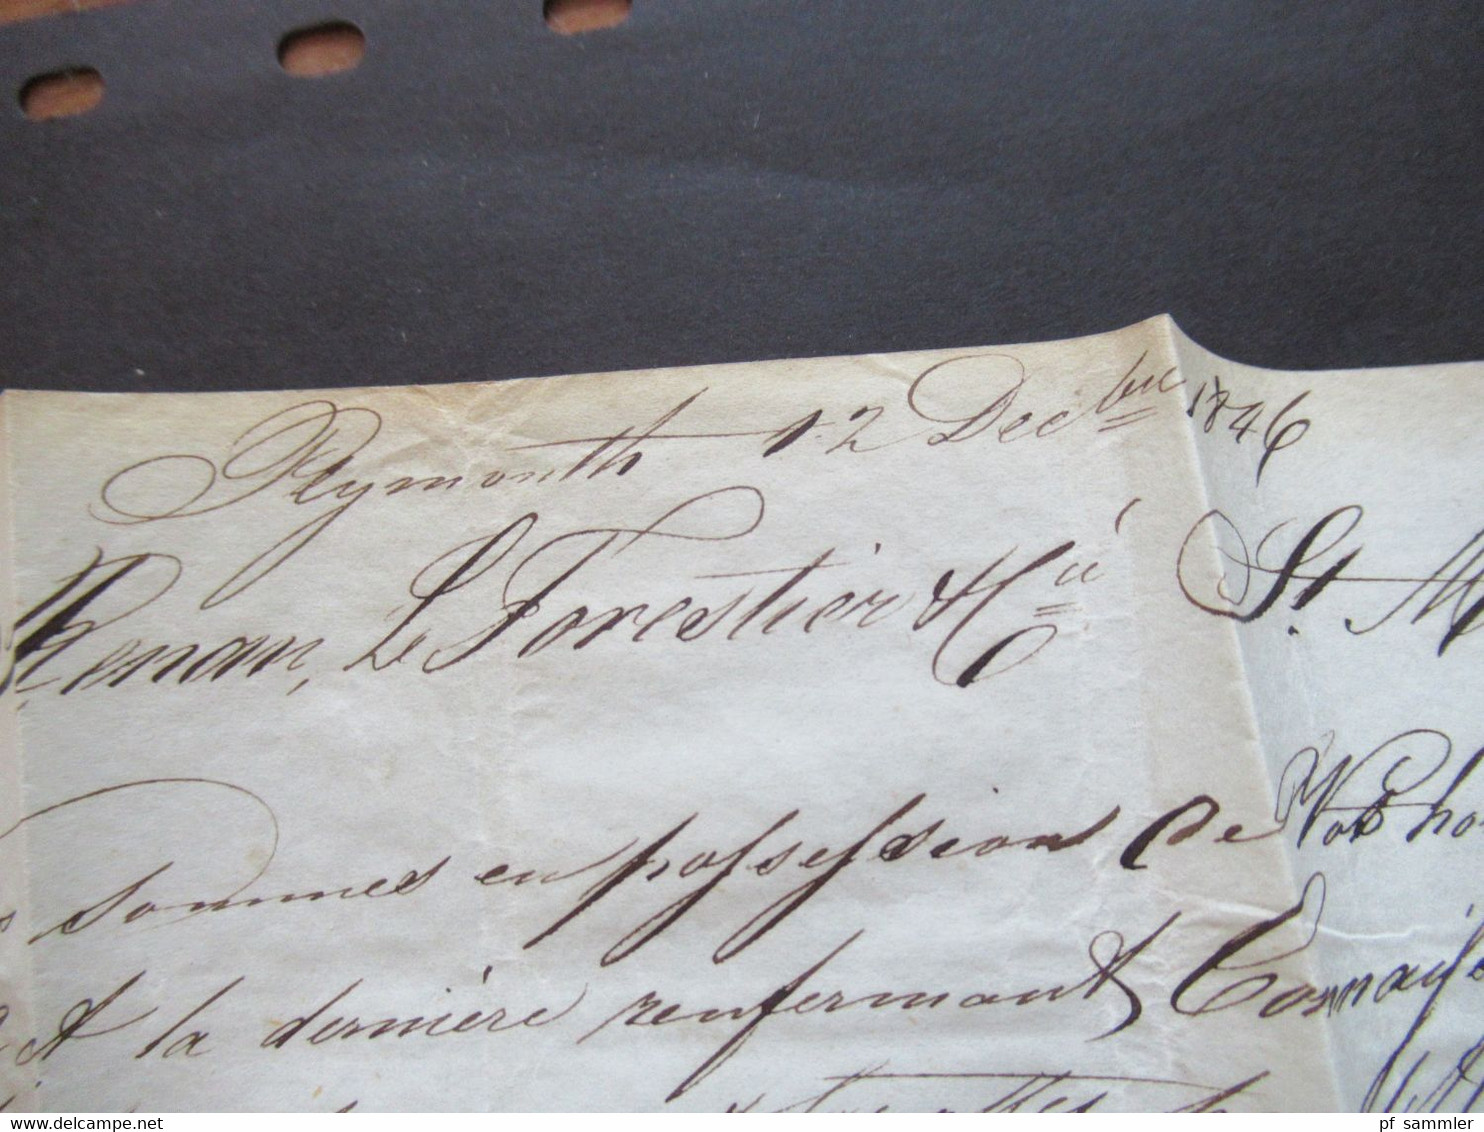 Plymouth 12 Decbre 1846
Renan, Le Forestier & Cie St. M
sommes en possession de Vos ho
et la dernière renfermant Connaiss
delcampe.net
pf_sammler